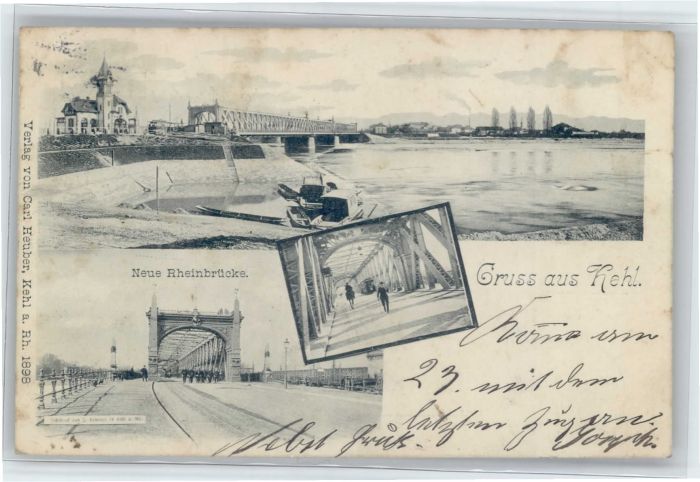 Verlag von Carl Heuber, Kehl a. Rh. 1898
Neue Rheinbrücke.
Gruss aus Kehl.
Kome am
23. mit dem
letzten Zug an.
Nebst Gruß